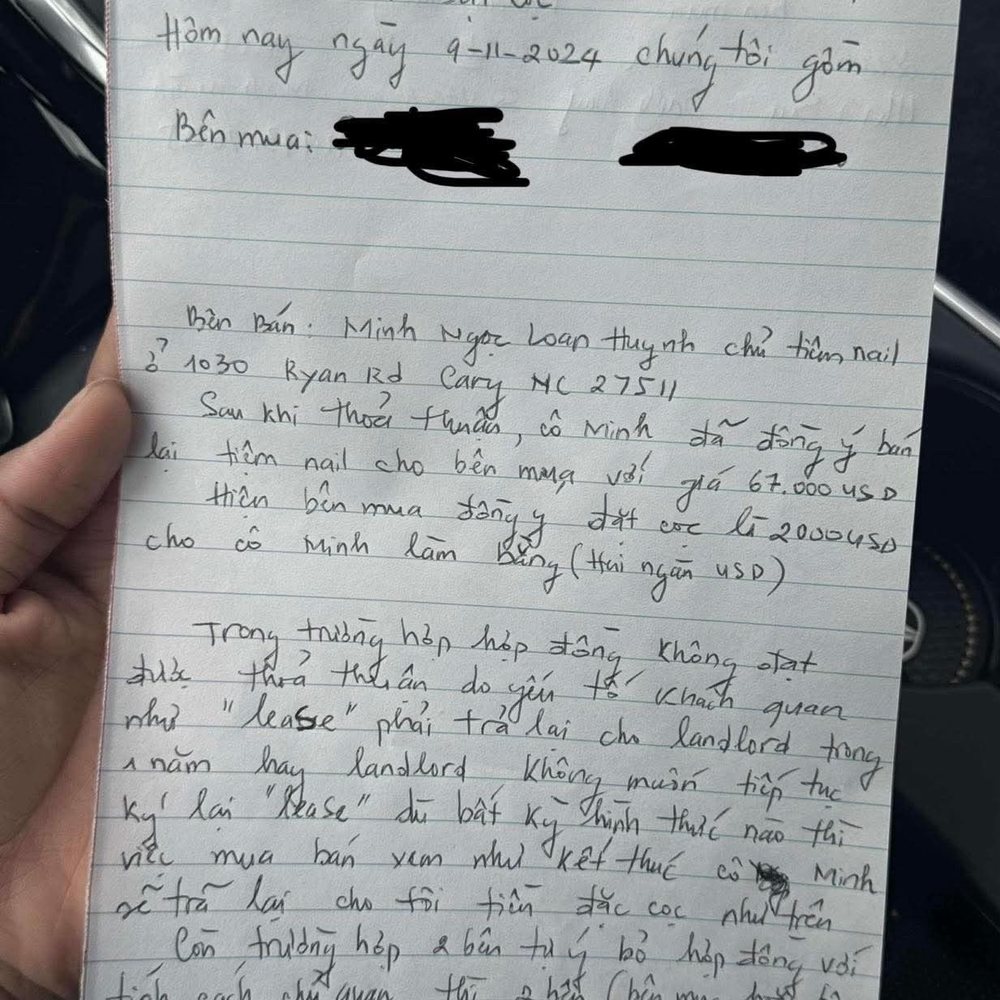 Hôm nay ngày 9-11-2024 chúng tôi gồm
Bên mua:
Bên Bán: Minh Ngọc Loan Huynh chủ tiệm nail
ở 1030 Ryan Rd Cary NC 27511
Sau khi thoả thuận, cô Minh đã đồng ý bán
lại tiệm nail cho bên mua với giá 67.000 USD
Hiện bên mua đồng ý đặt cọc là 2000 USD
cho cô Minh làm bằng (Hai ngàn USD)
Trong trường hợp hợp đồng không đạt
được thoả thuận do yếu tố khách quan
như "lease" phải trả lại cho landlord trong
1 năm hay landlord không muốn tiếp tục
ký lại "lease" dù bất kỳ hình thức nào thì
việc mua bán xem như kết thúc cô Minh
sẽ trả lại cho tôi tiền đặc cọc như trên
Còn trường hợp 2 bên tự ý bỏ hợp đồng với
chủ quan thì 2 bên (bên mua